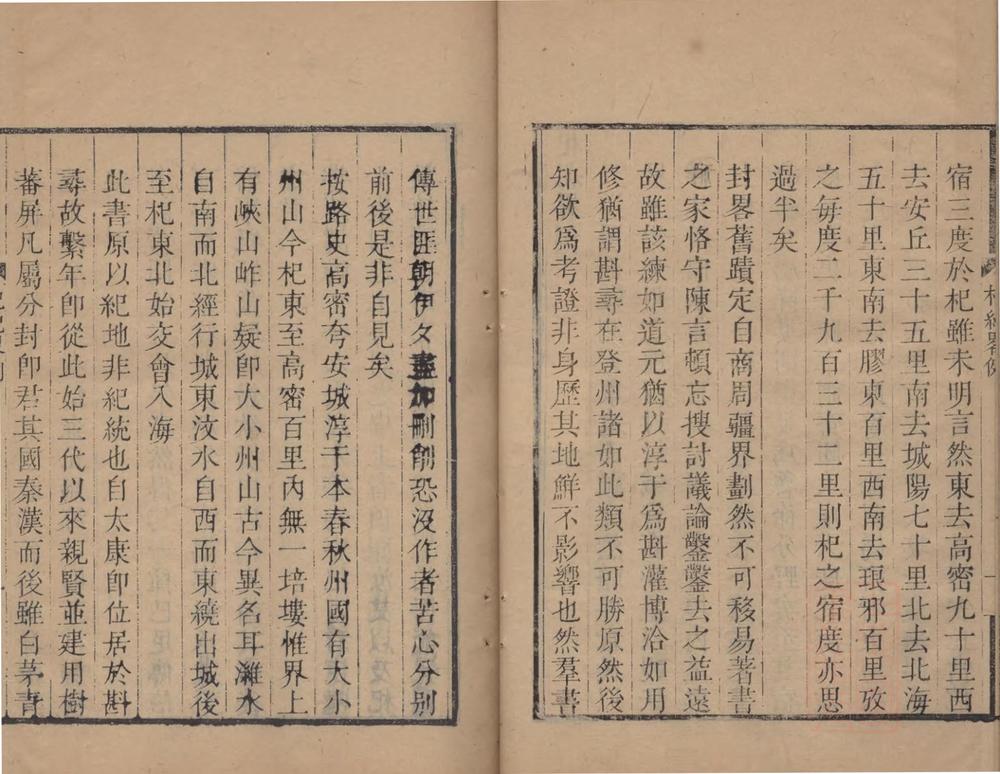 宿三度於杞雖未明言然東去高密九十里西
去安丘三十五里南去城陽七十里北去北海
五十里東南去膠東百里西南去琅邪百里攷
之每度二千九百三十二里則杞之宿度亦思
過半矣
封畧舊蹟定自商周疆界劃然不可移易著書
之家恪守陳言頓忘搜討議論鑿鑿去之益遠
故雖該練如道元猶以淳于爲斟灌博洽如用
修猶謂斟尋在登州諸如此類不可勝原然後
知欲爲考證非身歷其地鮮不影響也然羣書
傳世匪朝伊夕盡加刪削恐沒作者苦心分别
前後是非自見矣
按路史高密夸安城淳于本春秋州國有大小
州山今杞東至高密百里內無一培塿惟界上
有峽山岞山疑卽大小州山古今異名耳濰水
自南而北經行城東汶水自西而東繞出城後
至杞東北始交會入海
此書原以紀地非紀統也自太康卽位居於斟
尋故繫年卽從此始三代以來親賢並建用樹
蕃屏凡屬分封卽君其國秦漢而後雖白茅靑